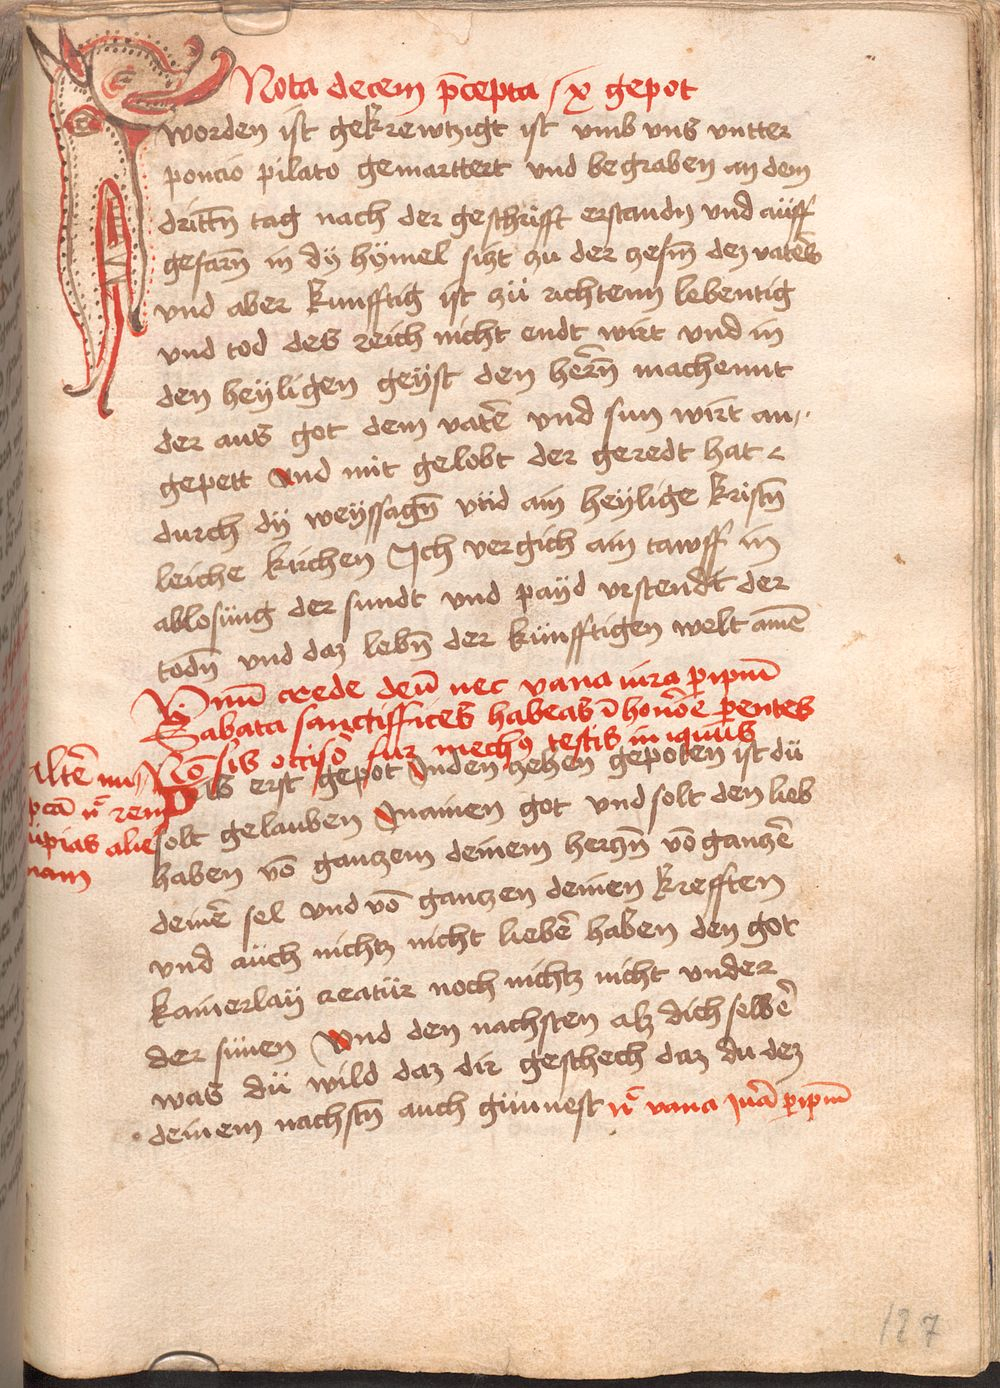 Nota decem p̄cepta / x gepot
worden ist gekrewtzigt ist vmb vns vntter
poncio pilato gemarttert vnd begraben an dem
dritt̄n tag nach der geschrifft erstandn̄ vnd aüff
gefarn̄ in dÿ hÿmel sitzt zu der zesm̄ dez vaters
vnd aber kunfftig ist zü richtenn lebentig
vnd tod des reich nicht endt wirt vnd in
den heÿligen geÿst den hern̄ machennt
der aus got dem vatē vnd sun wirt an〃
gepett vnd mit gelobt der geredt hat
durch dÿ weÿssagn̄ vnd ain heÿlige kristn̄
leiche kirchen Ich vergich ain tawff in
ablosüng der sundt vnd paÿd vrstendt der
todn̄ vnd daz lebn̄ der künfftigen welt amē
Vnnū crede deū nec vana iura ꝑ ipm̄
Sabata sanctifices habeas ī honōe ꝑentes
Nō sis occisō fur mechꝰ testis iniquus
altē nu〃
pcā n̄ rem
cupias alie
nam
Das erst gepot Inden zehen gepoten ist dü
solt gelauben Inainen got vnd solt den lieb
haben vō gantzem deinem hertzn̄ vō gantzē
deinē sel vnd vō gantzen deinen krefften
vnd aüch nichtz nicht liebē haben den got
kainerlaÿ creatür noch nichtz nicht vnder
der sünen Vnd den nachsten alz dich selbē
was dü wild daz dir geschech daz du dez
deinem nachstn̄ auch günnest n̄ vana iurā ꝑ ipm̄
127